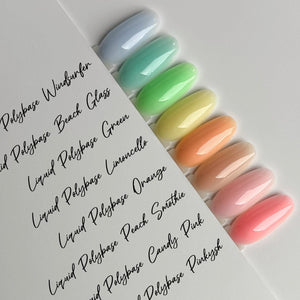 Polybase Windsurfer
Polybase Beach Glass
Liquid Polybase Green
Liquid Polybase Limoncello
Liquid Polybase Orange
Liquid Polybase Peach Smothie
Liquid Polybase Candy Pink
Polybase Pinkysh